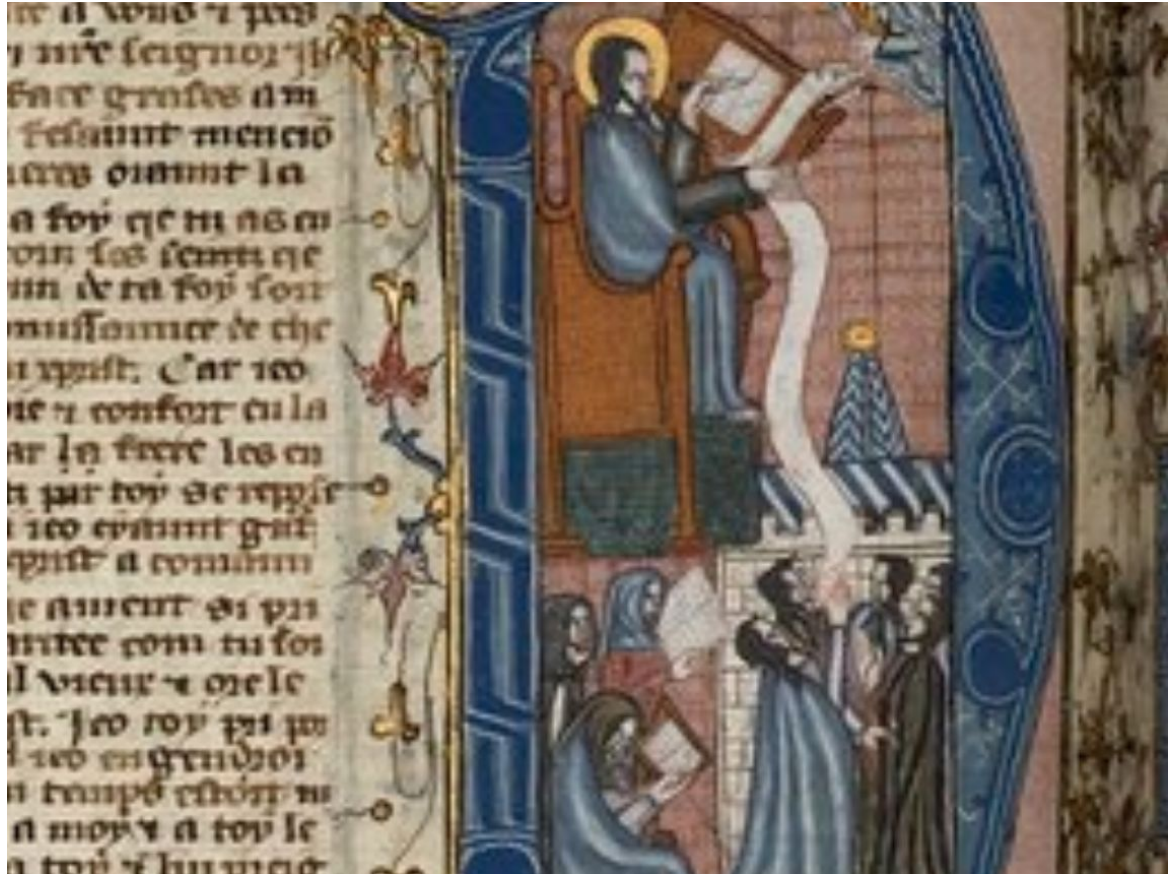 a vous ⁊ pees
nr̃e seignor ih
face grases a m
fesaunt menciõ
oiaunt la
a foy qe tu as en
sos seintz qe
un de ta foy soit
nuissaunce de che
xpist. Car ieo
ie ⁊ confort en la
ar la frere les en
n par toy se repose
ieo
xpist a comaun
e ament si pri
aritee com tu soi
l vieux ⁊ ore le
st. Jeo toy pri
ieo engendroi
n temps estoit
a moy ⁊ a toy le
toy ⁊